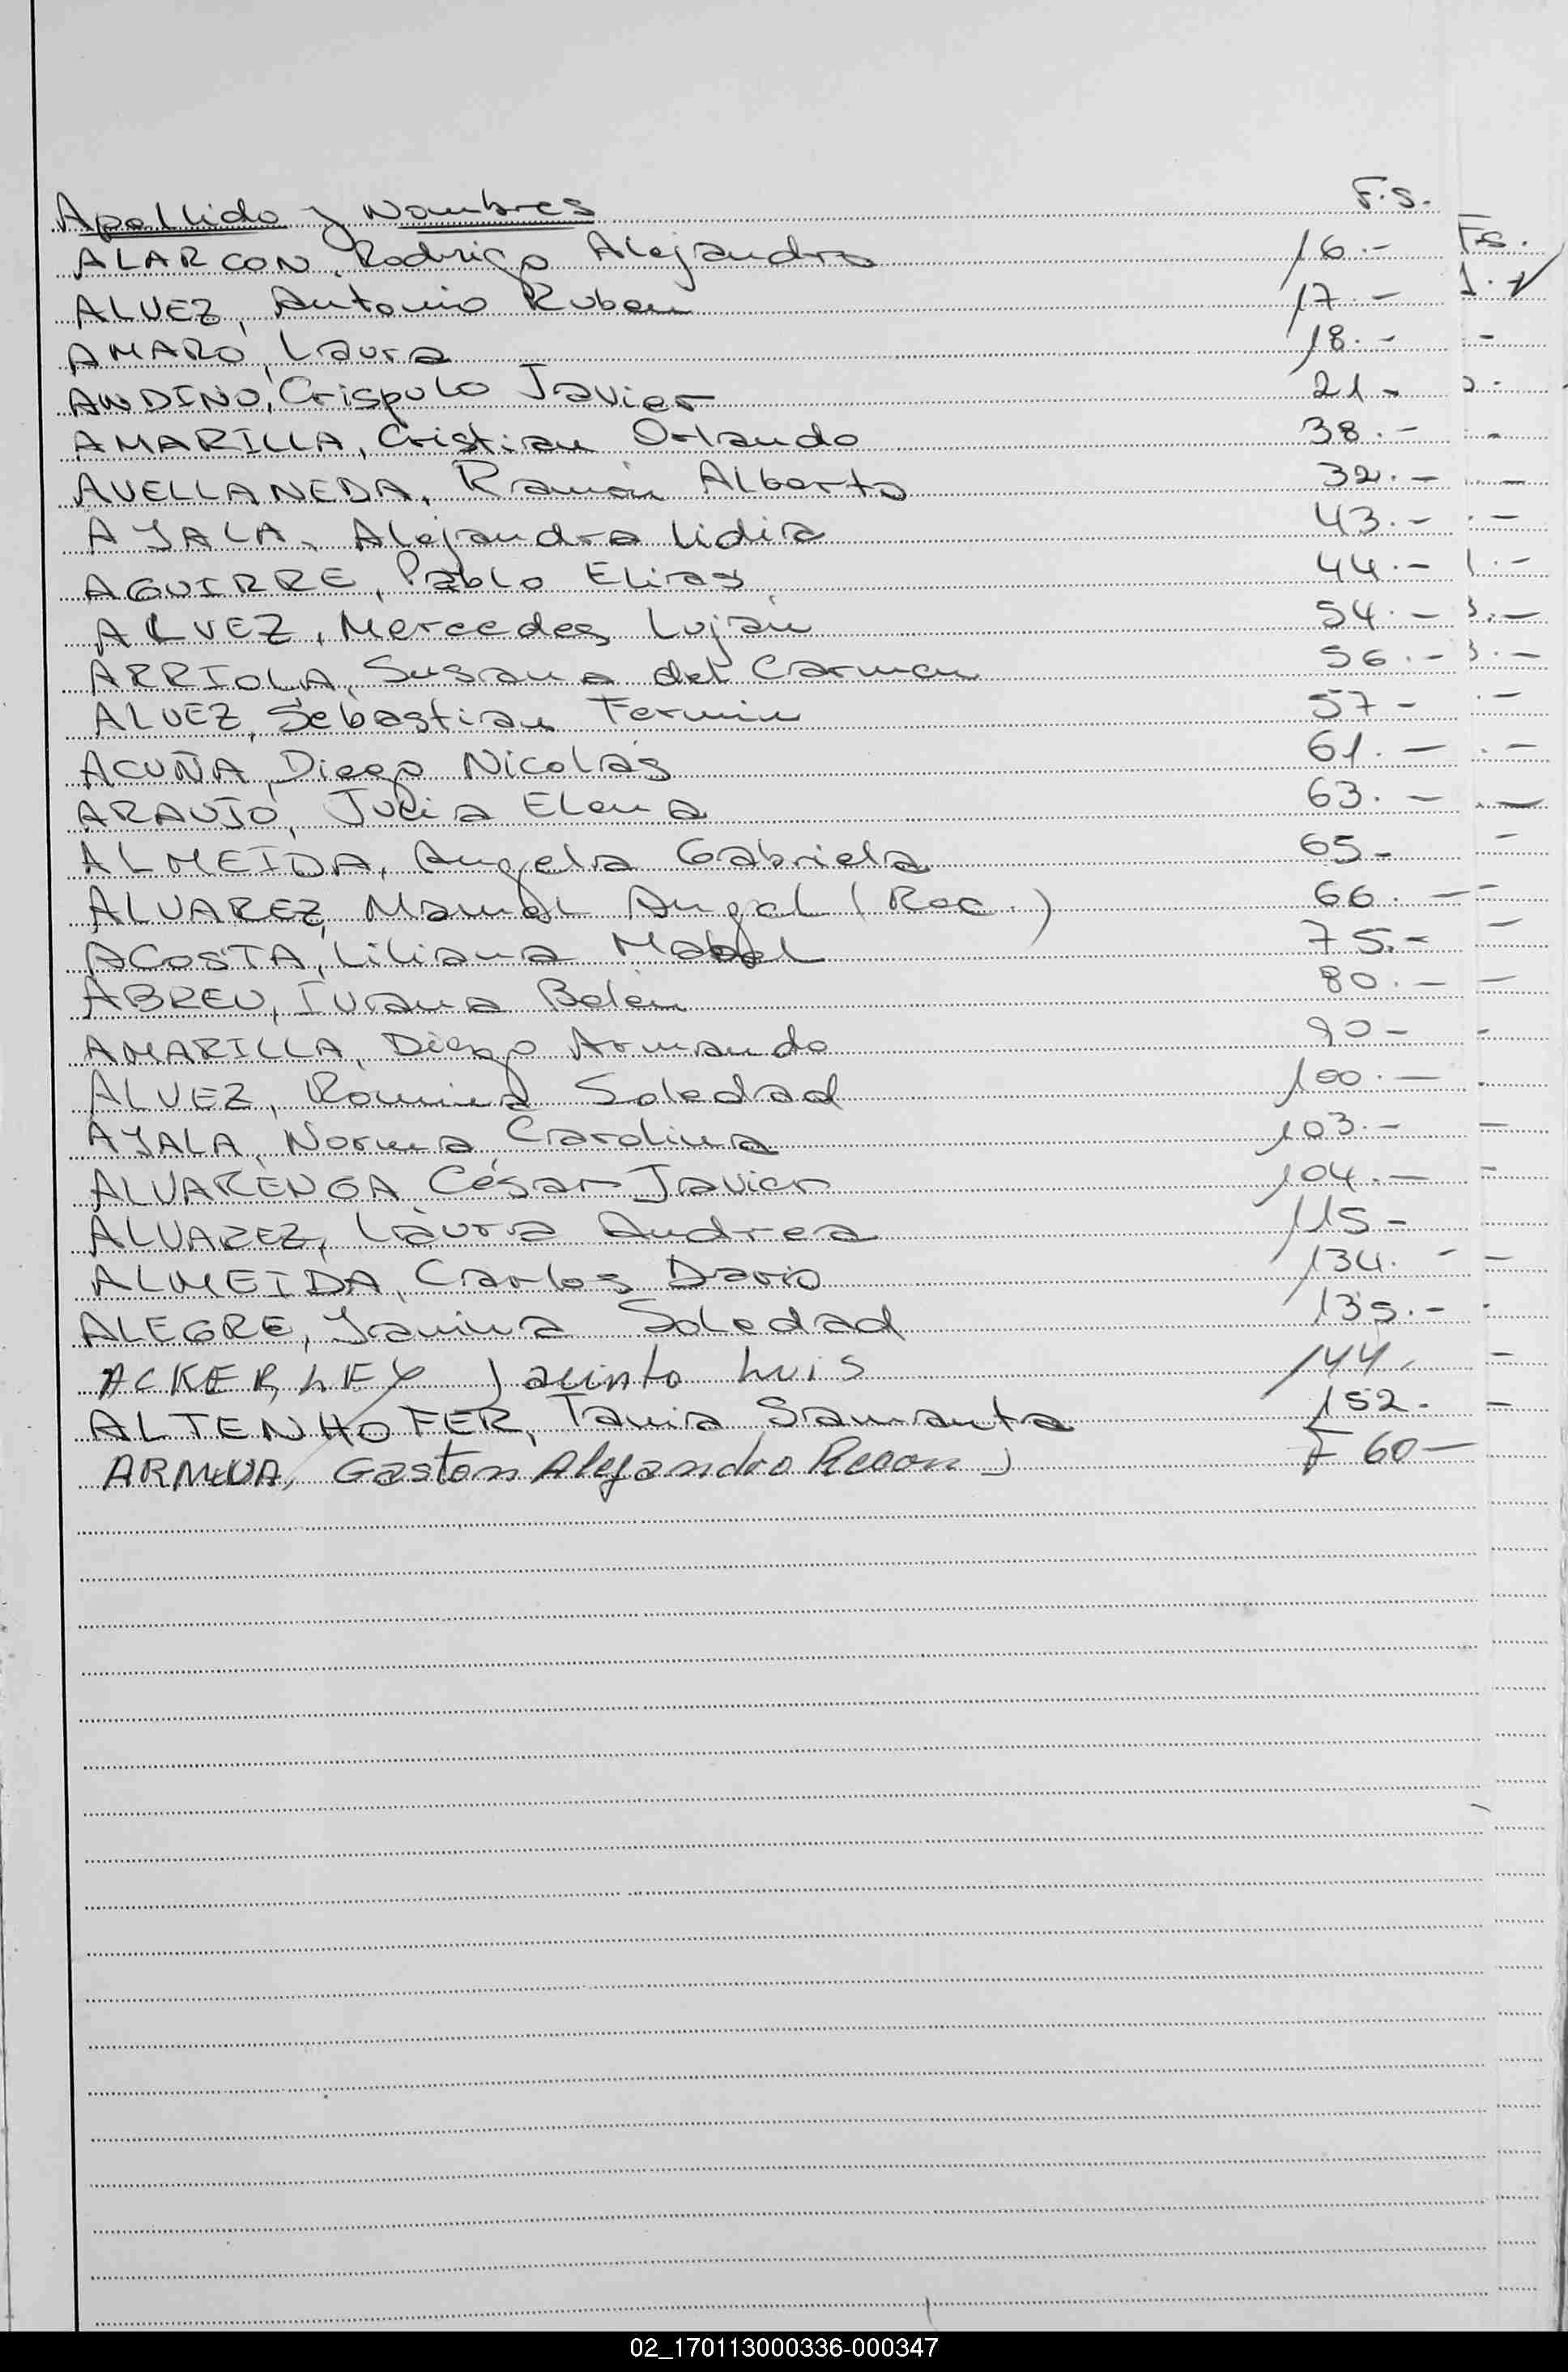 Apellido y Nombres F.S.
ALARCON, Rodrigo Alejandro 16.-
ALVEZ, Antonio Ruben 17.-
AMARO, Laura 18.-
ANDINO, Crispulo Javier 21-
AMARILLA, Cristian Orlando 38.-
AVELLANEDA, Ramón Alberto 32.-
AYALA, Alejandra Lidia 43.-
AGUIRRE, Pablo Elias 44.-
ALVEZ, Mercedes Luján 54.-
ARRIOLA, Susana del Carmen 56.-
ALVEZ, Sebastian Fermin 57-
ACUÑA, Diego Nicolás 61.-
ARAUJO, Julia Elena 63.-
ALMEIDA, Angela Gabriela 65-
ALVAREZ, Manuel Angel (Rec.) 66.-
ACOSTA, Liliana Mabel 75.-
ABREU, Ivana Belén 80.-
AMARILLA, Diego Armando 90-
ALVEZ, Romina Soledad 100.-
AYALA, Norma Carolina 103.-
ALVARENGA César Javier 104.-
ALVAREZ, Laura Andrea 115-
ALMEIDA, Carlos Dario 134.-
ALEGRE, Yanina Soledad 135.-
ACKERLEY Jacinto Luis 144.
ALTENHOFER, Tania Samanta 152.
Gaston Alejandro F 60-
Fs.
02_170113000336-000347